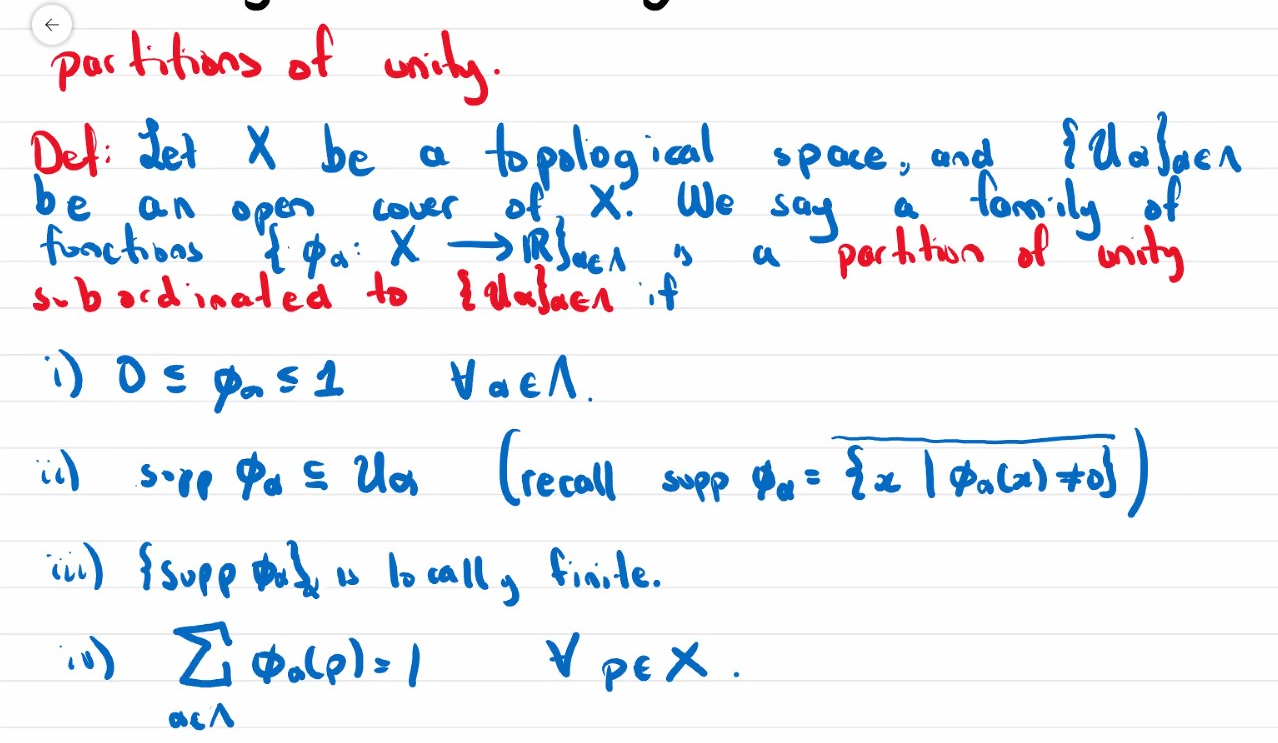 partitions of unity.
Def: Let X be a topological space, and {Uα}α∈Λ
be an open cover of X. We say a family of
functions {φα: X → ℝ}α∈Λ is a partition of unity
subordinated to {Uα}α∈Λ if
i) 0 ≤ φα ≤ 1 ∀ α∈Λ.
ii) supp φα ⊆ Uα (recall supp φα = \overline{{x | φα(x) ≠ 0}})
iii) {supp φα}α is locally finite.
iv) ∑α∈Λ φα(p) = 1 ∀ p∈X.